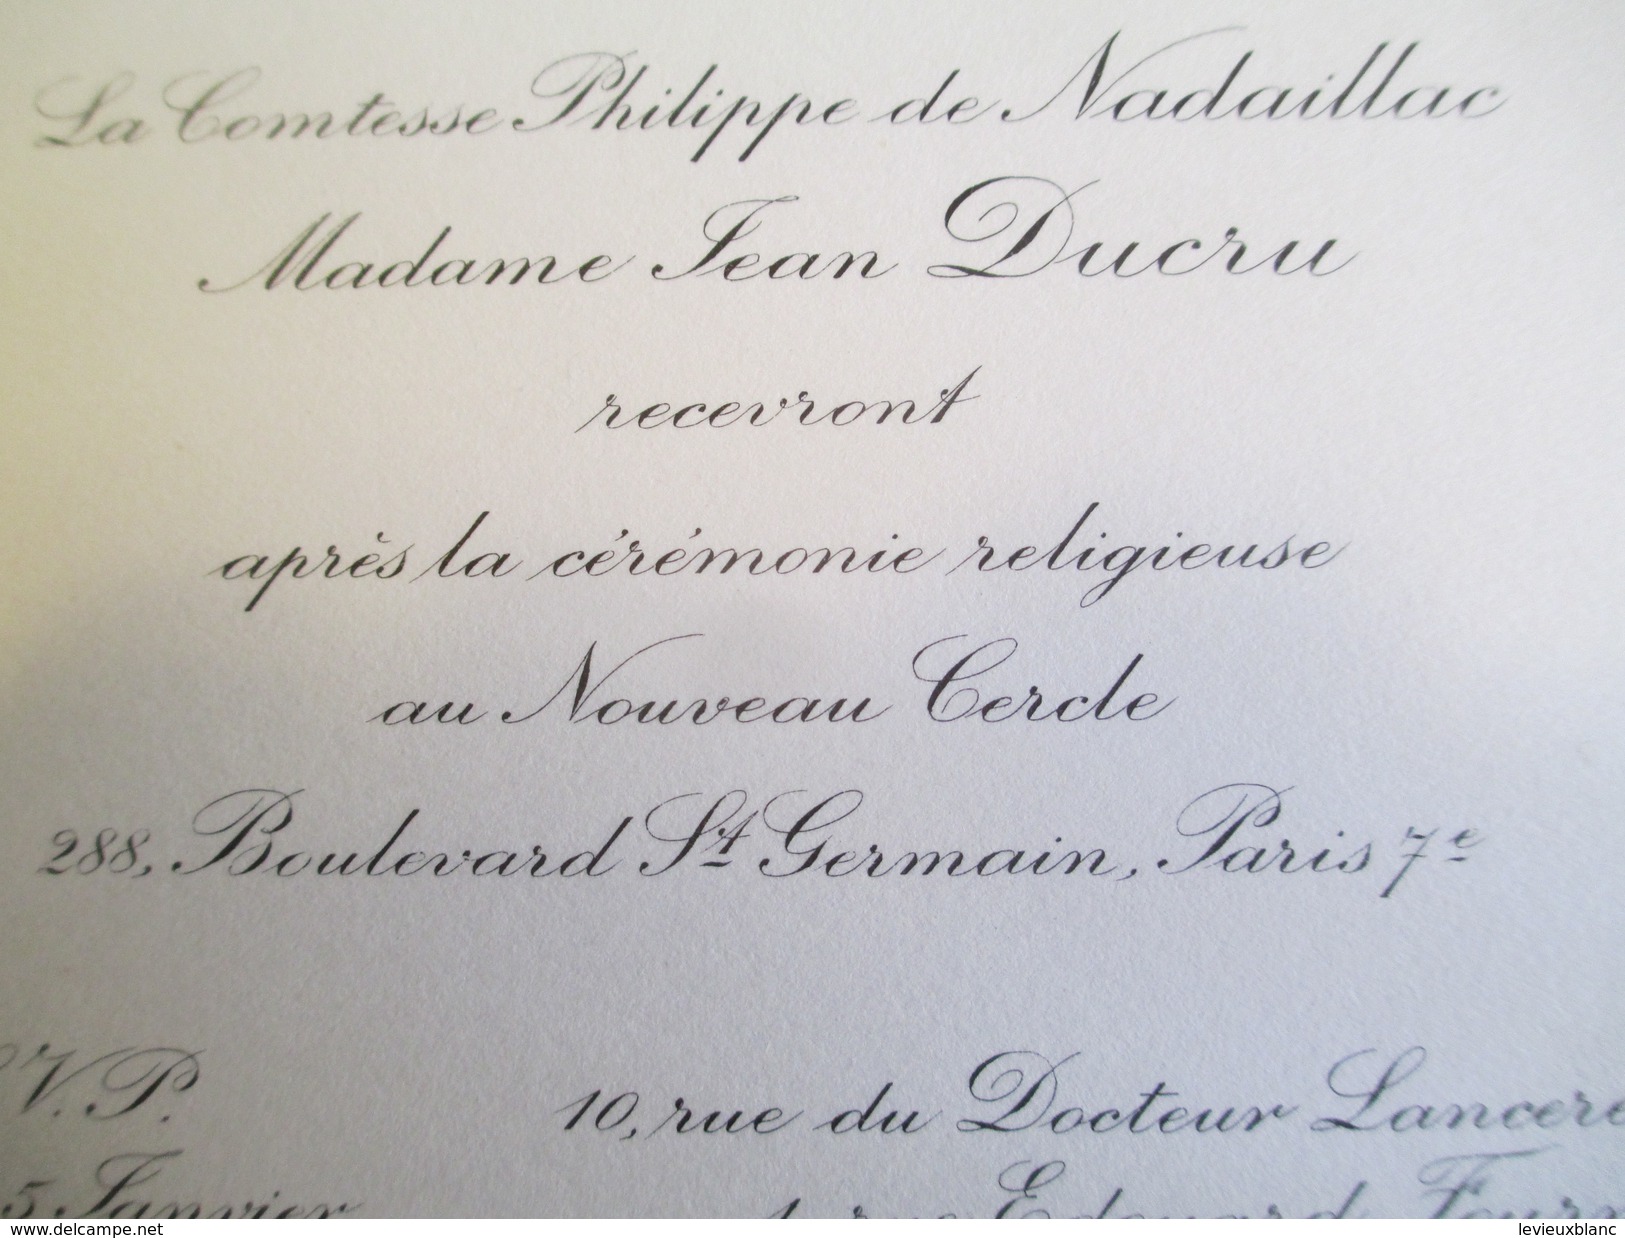 La Comtesse Philippe de Nadaillac
Madame Jean Ducru
recevront
après la cérémonie religieuse
au Nouveau Cercle
288, Boulevard St Germain, Paris 7e
V.P. 10, rue du Docteur Lancere
5 Janvier 1 rue Edouard Fourn
delcampe.net levieuxblanc